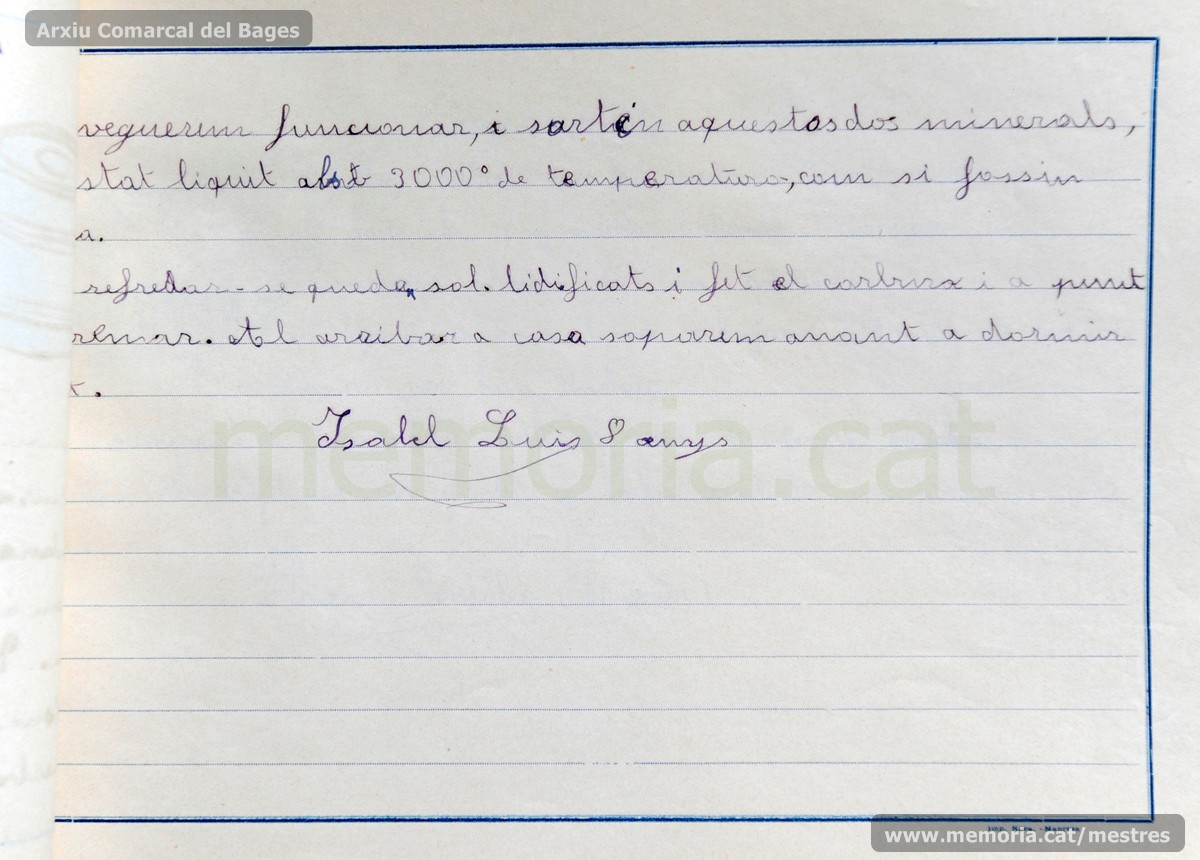 Arxiu Comarcal del Bages
veguerem funcionar, i sortien aquestos dos minerals,
stat liquit 3000° de temperatura, com si fossin
a.
refredar-se queden sol.lidificats i fet el carburx i a punt
remar. Al arribar a casa soparem anant a dormir
t.
memoria.cat
Isabel Luis 8 anys
www.memoria.cat/mestres